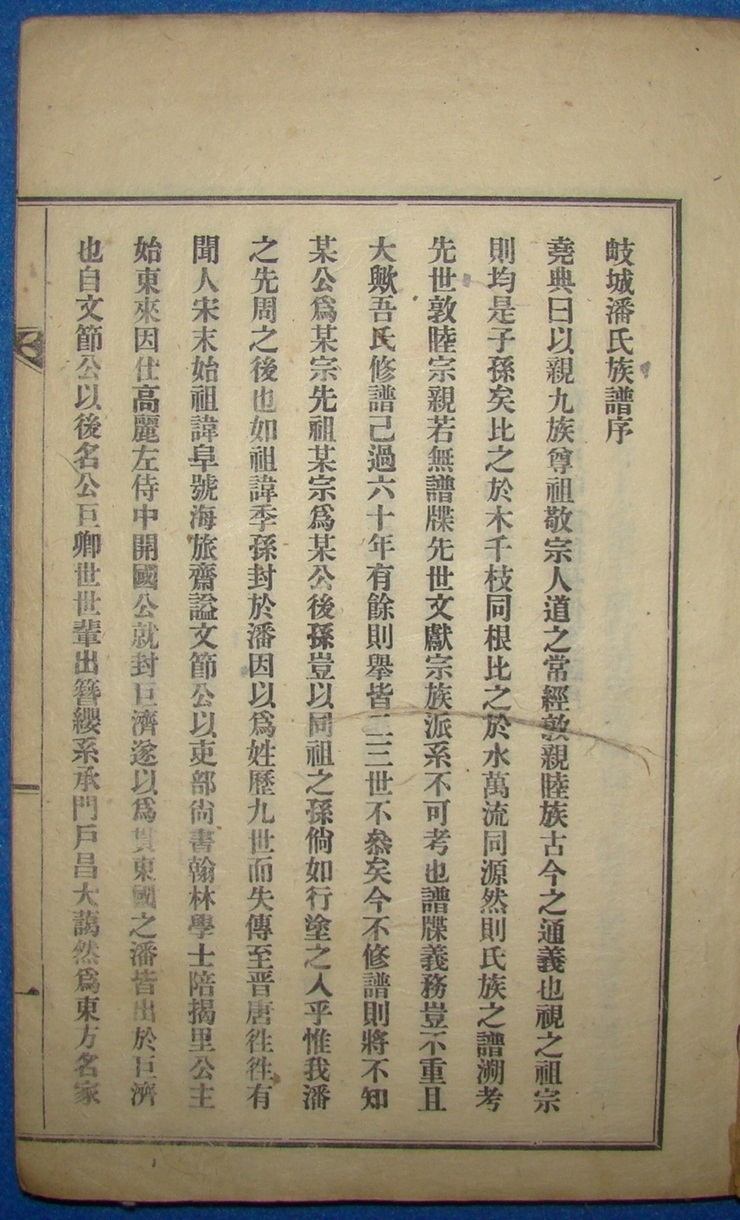 岐城潘氏族譜序
堯典曰以親九族尊祖敬宗人道之常經敦親睦族古今之通義也視之祖宗
則均是子孫矣比之於木千枝同根比之於水萬流同源然則氏族之譜溯考
先世敦睦宗親若無譜牒先世文獻宗族派系不可考也譜牒義務豈不重且
大歟吾氏修譜己過六十年有餘則擧皆二三世不叅矣今不修譜則將不知
某公爲某宗先祖某宗爲某公後孫豈以同祖之孫倘如行塗之人乎惟我潘
之先周之後也如祖諱季孫封於潘因以爲姓歷九世而失傳至晋唐徃徃有
聞人宋末始祖諱阜號海旅齋謚文節公以吏部尙書翰林學士陪揭里公主
始東來因仕高麗左侍中開國公就封巨濟遂以爲貫東國之潘皆出於巨濟
也自文節公以後名公巨卿世世輩出簪纓系承門戶昌大藹然爲東方名家